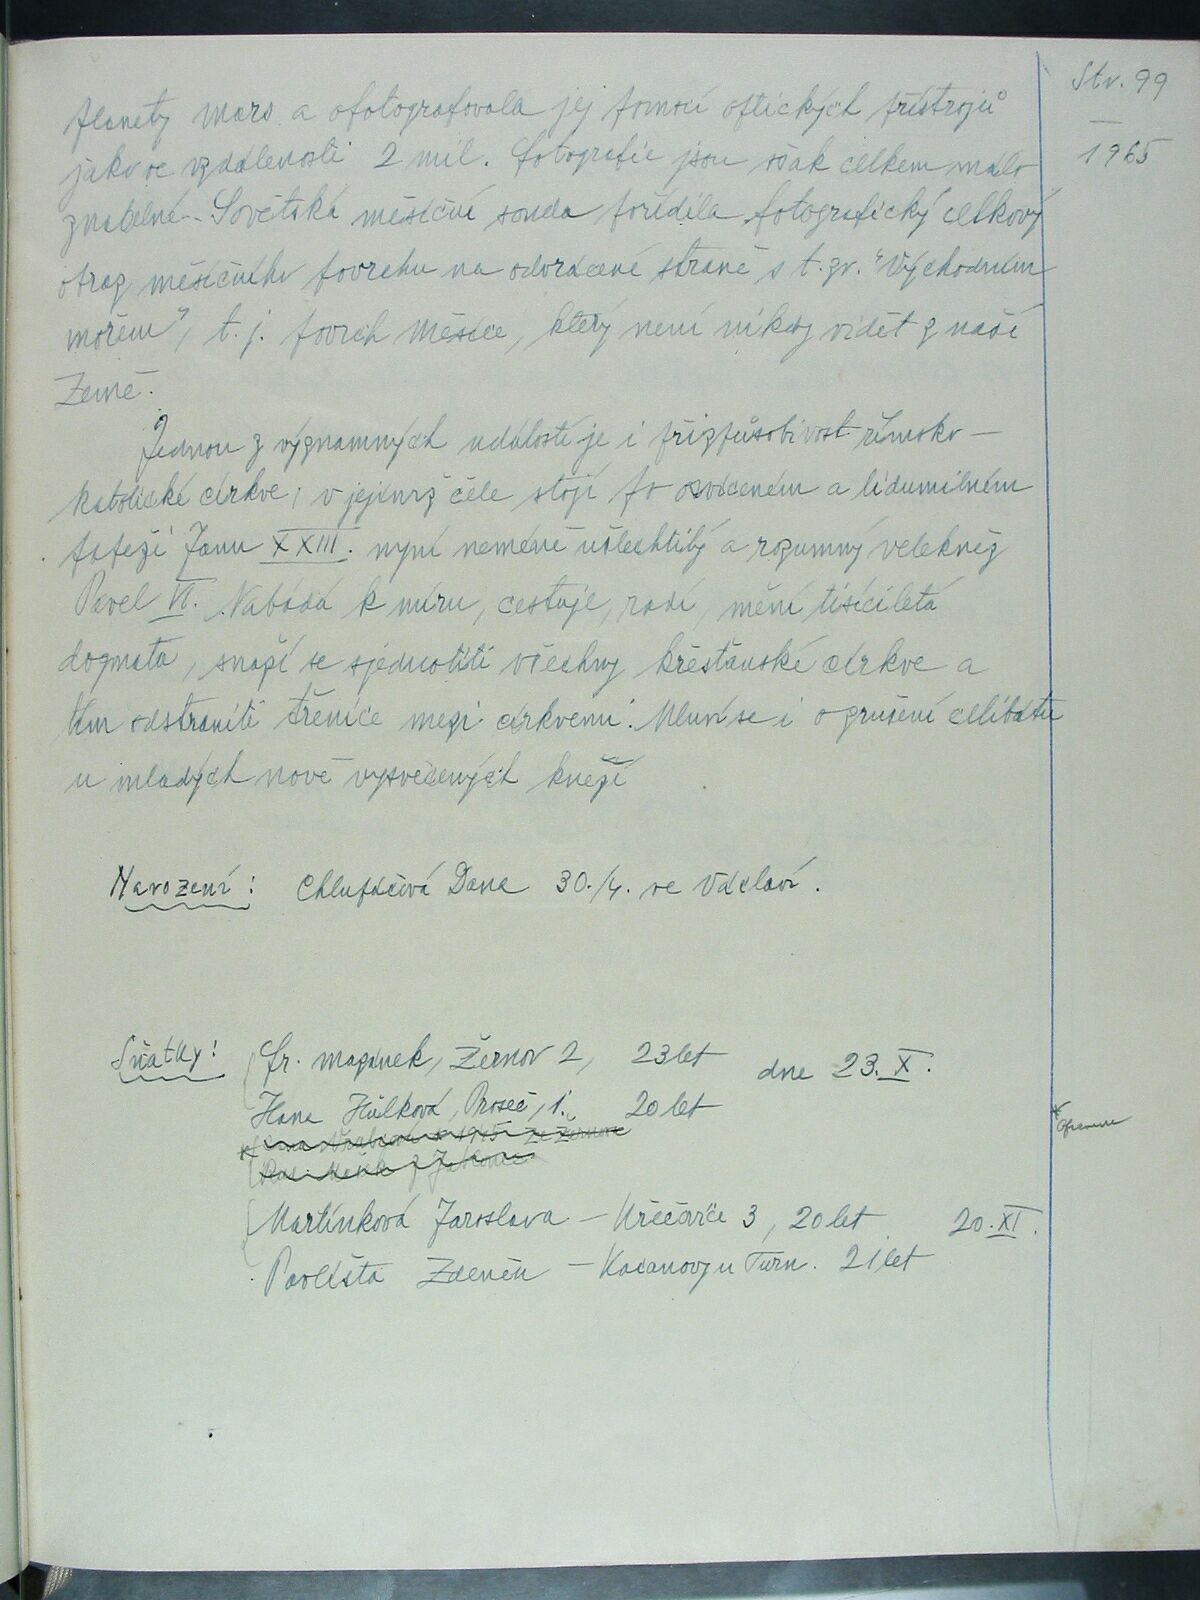 Str. 99
—
1965
planety Mars a ofotografovala jej pomocí optických přístrojů
jako ve vzdálenosti 2 mil. fotografie jsou však celkem málo
znatelné. Sovětská měsíční sonda pořídila fotografický celkový
obraz měsíčního povrchu na odvrácené straně s t. zv. "Východním
mořem", t. j. povrch Měsíce, který není nikdy vidět z naší
Země.
Jednou z významných událostí je i přizpůsobivost římsko-
katolické církve, v jejímž čele stojí po osvíceném a lidumilném
papeži Janu XXIII. nyní neméně ušlechtilý a rozumný velekněz
Pavel VI. Nabádá k míru, cestuje, radí, mění tisíciletá
dogmata, snaží se sjednotiti všechny křesťanské církve a
tím odstraniti třenice mezi církvemi. Mluví se i o zrušení celibátu
u mladých nově vysvěcených kněží
Narození: Chlupáčová Dana 30./4. ve Václaví.
Sňatky: Fr. Mazánek, Žernov 2, 23 let dne 23. X.
Hana Hůlková, Proseč, 1. 20 let
1945 ze Žernova
Martínková Jaroslava – Křečovice 3, 20 let 20. XI.
Pavlišta Zdeněk – Kacanovy u Turn. 21 let